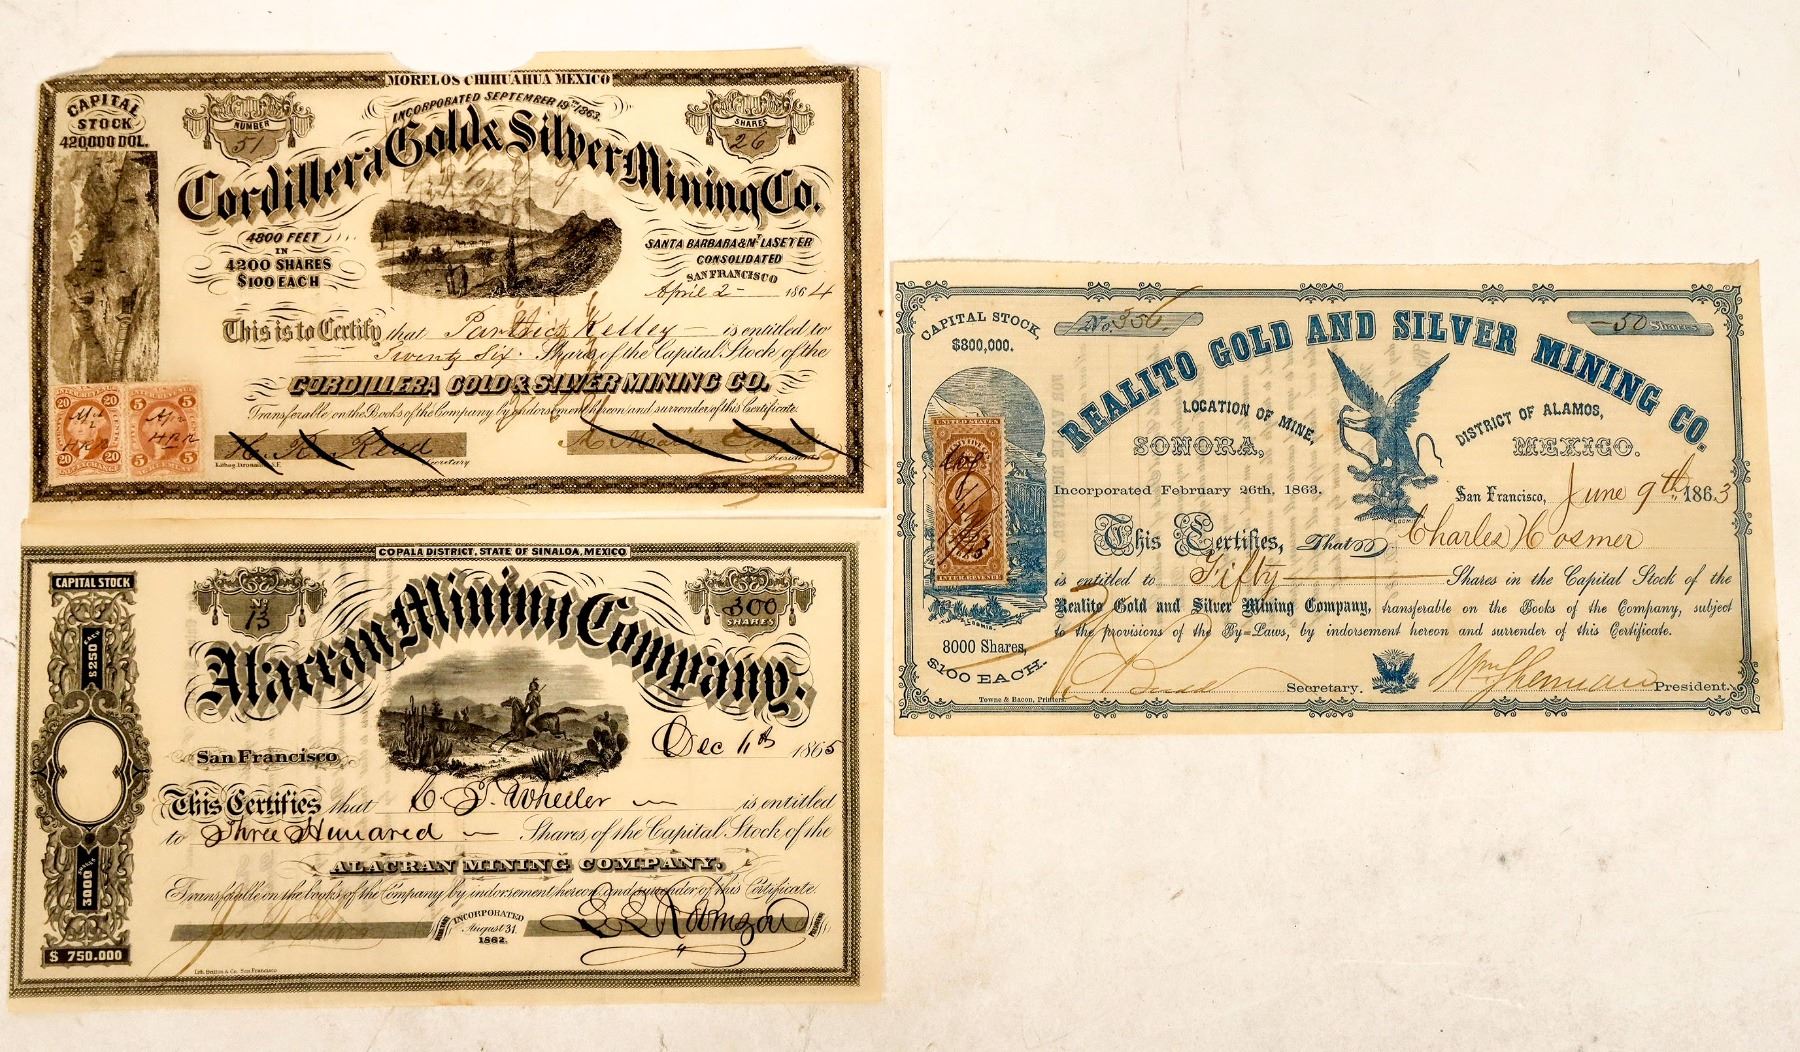 MORELOS CHIHUAHUA MEXICO
CAPITAL
STOCK
420,000 DOL.
NUMBER
51
INCORPORATED SEPTEMBER 19TH 1863.
SHARES
26
Cordillera Gold & Silver Mining Co.
4800 FEET
IN
4200 SHARES
$100 EACH
SANTA BARBARA & MT LASETER
CONSOLIDATED
SAN FRANCISCO
April 2 1864
This is to Certify that Patrick Kelley is entitled to
Twenty Six Shares of the Capital Stock of the
CORDILLERA GOLD & SILVER MINING CO.
Transferable on the Books of the Company by Endorsement hereon and surrender of this Certificate.
20 20 5 5
Apr
H R R
20 20 5 5
H. R. Reed
Secretary
President
COPALA DISTRICT, STATE OF SINALOA, MEXICO
CAPITAL STOCK
No
13
300
SHARES
Alacran Mining Company.
$250
EACH
San Francisco Dec 6th 1865
This Certifies that C. J. Wheeler is entitled
to Three Hundred Shares, of the Capital Stock of the
ALACRAN MINING COMPANY,
Transferable on the books of the Company by indorsement hereon and surrender of this Certificate.
3000
SHARES
INCORPORATED
August 31
1862.
$ 750.000
Lith. Britton & Co. San Francisco
CAPITAL STOCK,
$800,000.
No. 356.
50 Shares
REALITO GOLD AND SILVER MINING CO.
LOCATION OF MINE,
DISTRICT OF ALAMOS,
SONORA,
MEXICO.
UNITED STATES
INTER. REVENUE
Incorporated February 26th, 1863.
San Francisco, June 9th 1863
This Certifies, That Charles Hosmer
is entitled to Fifty Shares in the Capital Stock of the
Realito Gold and Silver Mining Company, transferable on the Books of the Company, subject
to the provisions of the By-Laws, by indorsement hereon and surrender of this Certificate.
8000 Shares,
$100 EACH.
Secretary.
Wm Sherman President.
Towne & Bacon, Printers.